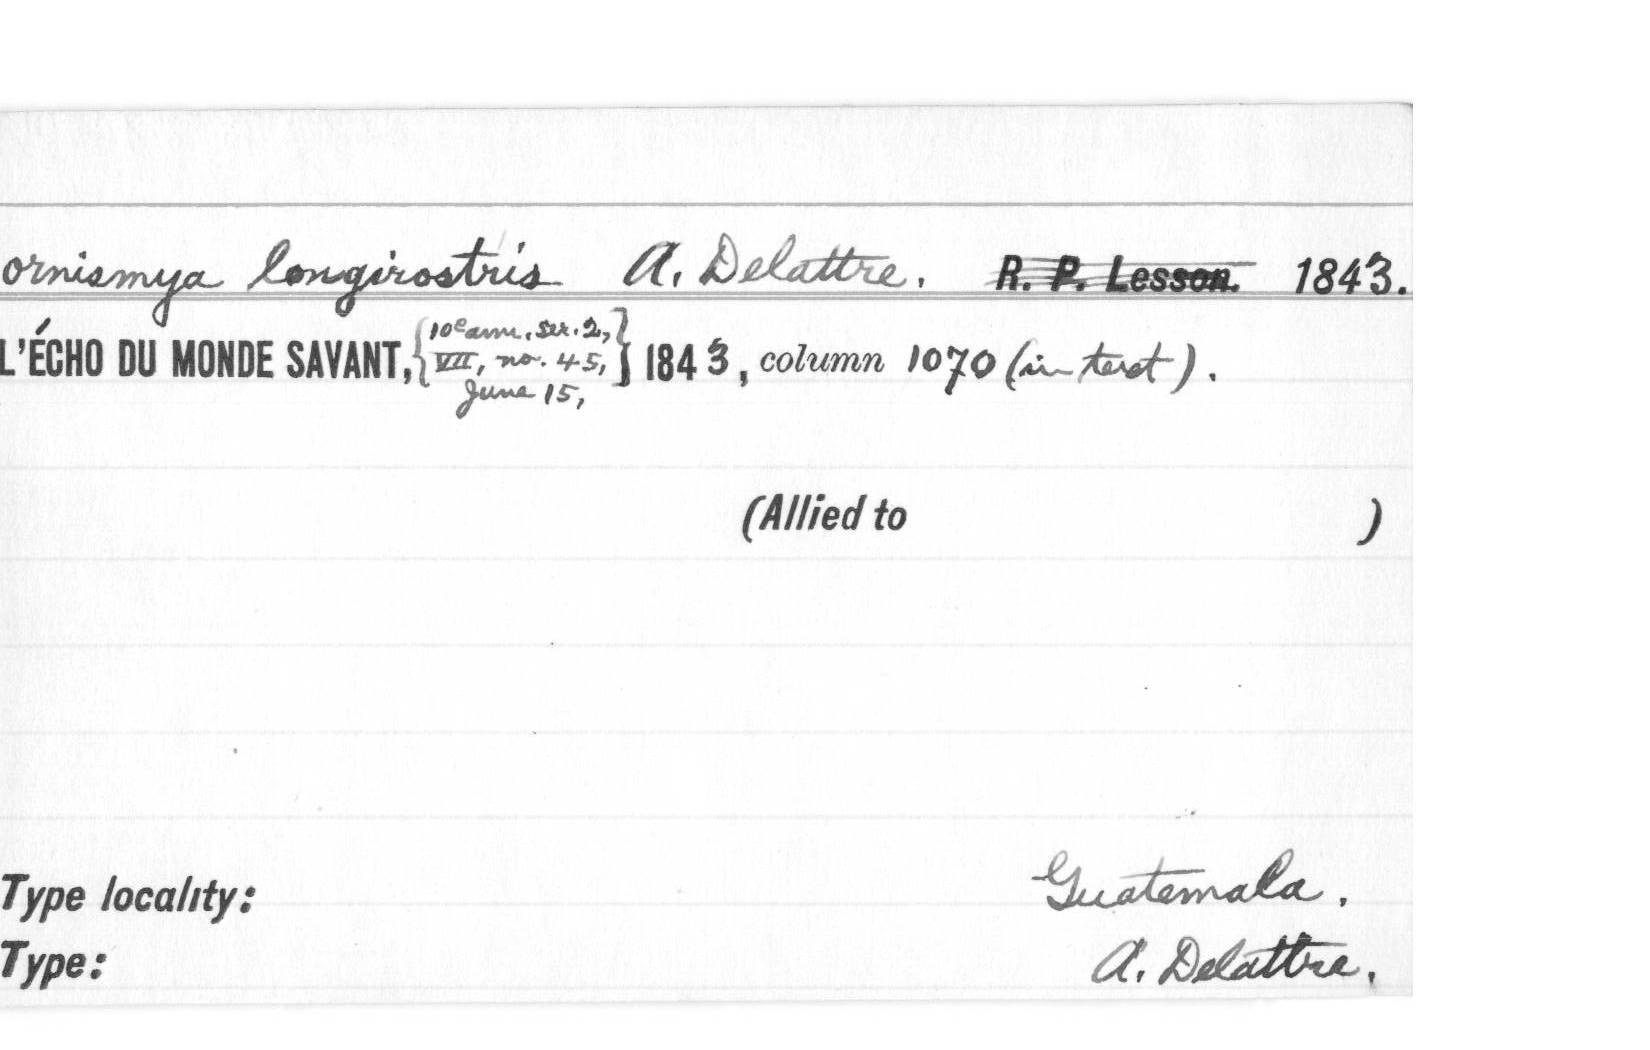 ornismya longirostris A. Delattre. R. P. Lesson. 1843.
L'ÉCHO DU MONDE SAVANT, {10e ann. ser. 2, VII, no. 45, June 15,} 1843, column 1070 (in text).
(Allied to )
Type locality: Guatemala.
Type: A. Delattre.